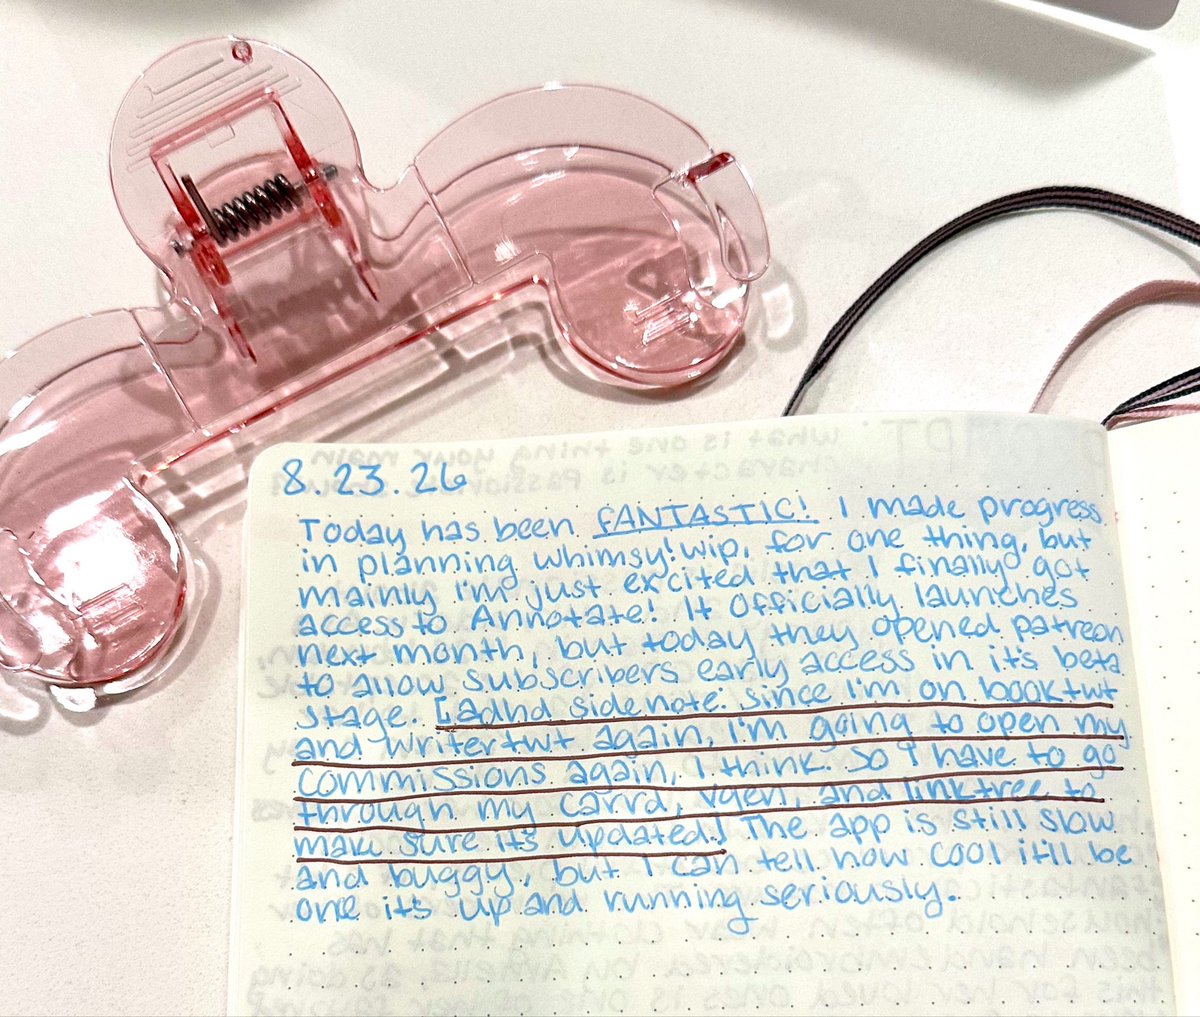 8.23.26
Today has been FANTASTIC! I made progress
in planning whimsy!wip, for one thing, but
mainly I'm just excited that I finally got
access to Annotate! It officially launches
next month, but today they opened patreon
to allow subscribers early access in it's beta
stage. [adhd sidenote: since I'm on booktwt
and writertwt again, I'm going to open my
commissions again, I think. So I have to go
through my carrd, vgen, and linktree to
make sure it's updated.] The app is still slow
and buggy, but I can tell how cool it'll be
one it's up and running seriously.